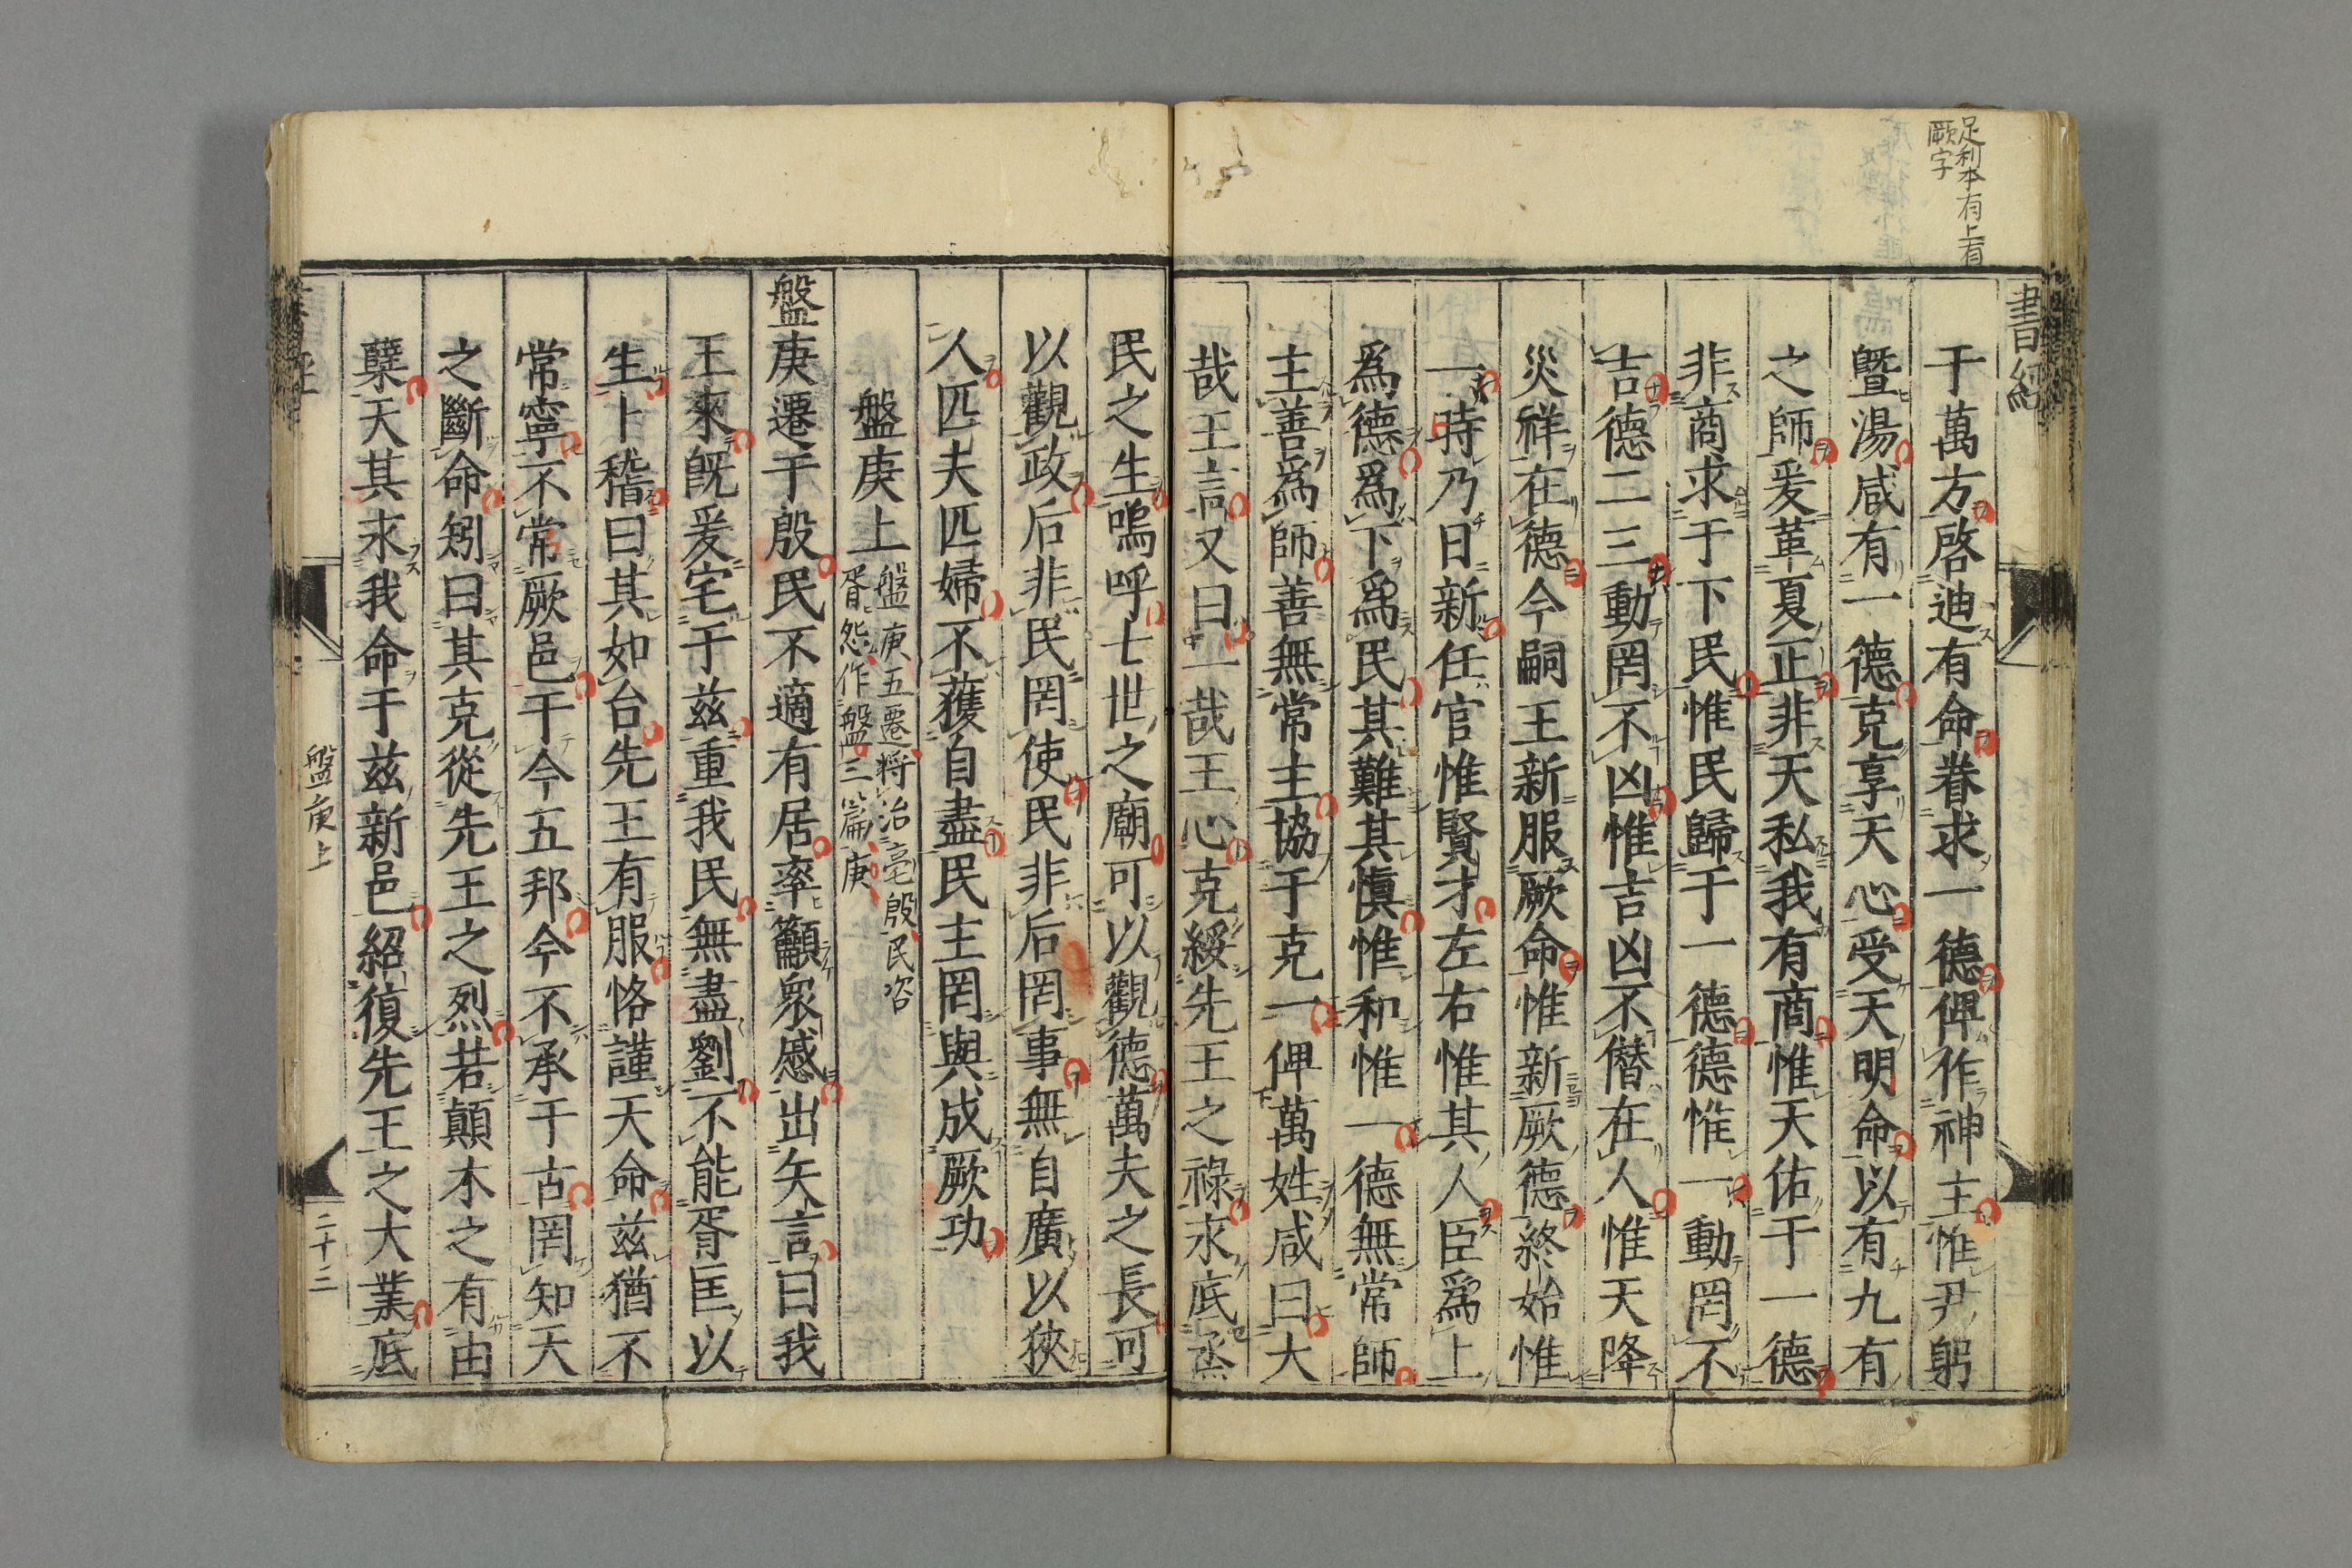 足利本有上有
厥字
書經
于萬方啓迪有命眷求一德俾作神主惟尹躬
曁湯咸有一德克享天心受天明命以有九有
之師爰革夏正非天私我有商惟天佑于一德
非商求于下民惟民歸于一德德惟一動罔不
吉德二三動罔不凶惟吉凶不僭在人惟天降
災祥在德今嗣王新服厥命惟新厥德終始惟
一時乃日新任官惟賢才左右惟其人臣爲上
爲德爲下爲民其難其愼惟和惟一德無常師
主善爲師善無常主協于克一俾萬姓咸曰大
哉王言又曰一哉王心克綏先王之祿永底烝
民之生嗚呼七世之廟可以觀德萬夫之長可
以觀政后非民罔使民非后罔事無自廣以狹
人匹夫匹婦不獲自盡民主罔與成厥功
盤庚上
盤庚五遷將治亳殷民咨
胥怨作盤三篇庚
盤庚遷于殷民不適有居率籲衆慼出矢言曰我
王來旣爰宅于茲重我民無盡劉不能胥匡以
生卜稽曰其如台先王有服恪謹天命茲猶不
常寧不常厥邑于今五邦今不承于古罔知天
之斷命矧曰其克從先王之烈若顚木之有由
蘖天其永我命于茲新邑紹復先王之大業底
盤庚上
二十三